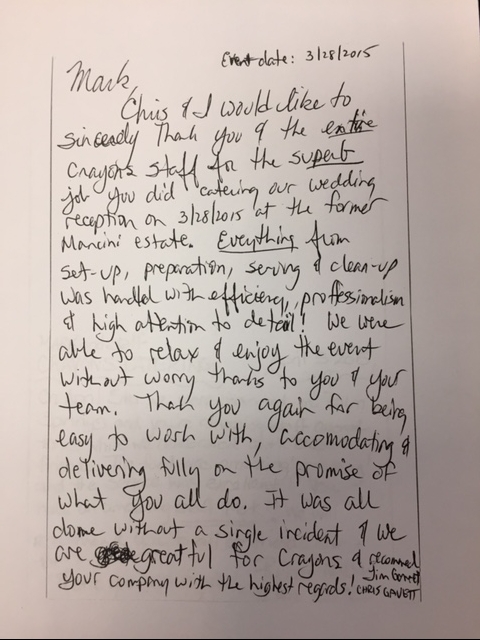 Event date: 3/28/2015
Mark,
Chris & I would like to
sincerely thank you & the entire
Crayons staff for the superb
job you did catering our wedding
reception on 3/28/2015 at the former
Mancini estate. Everything from
set-up, preparation, serving & clean-up
was handled with efficiency, professionalism
& high attention to detail! We were
able to relax & enjoy the event
without worry thanks to you & your
team. Thank you again for being
easy to work with, accomodating &
delivering fully on the promise of
what you all do. It was all
done without a single incident & we
are greatful for Crayons & recommend
your company with the highest regards! Jim
CHRIS GAVETT